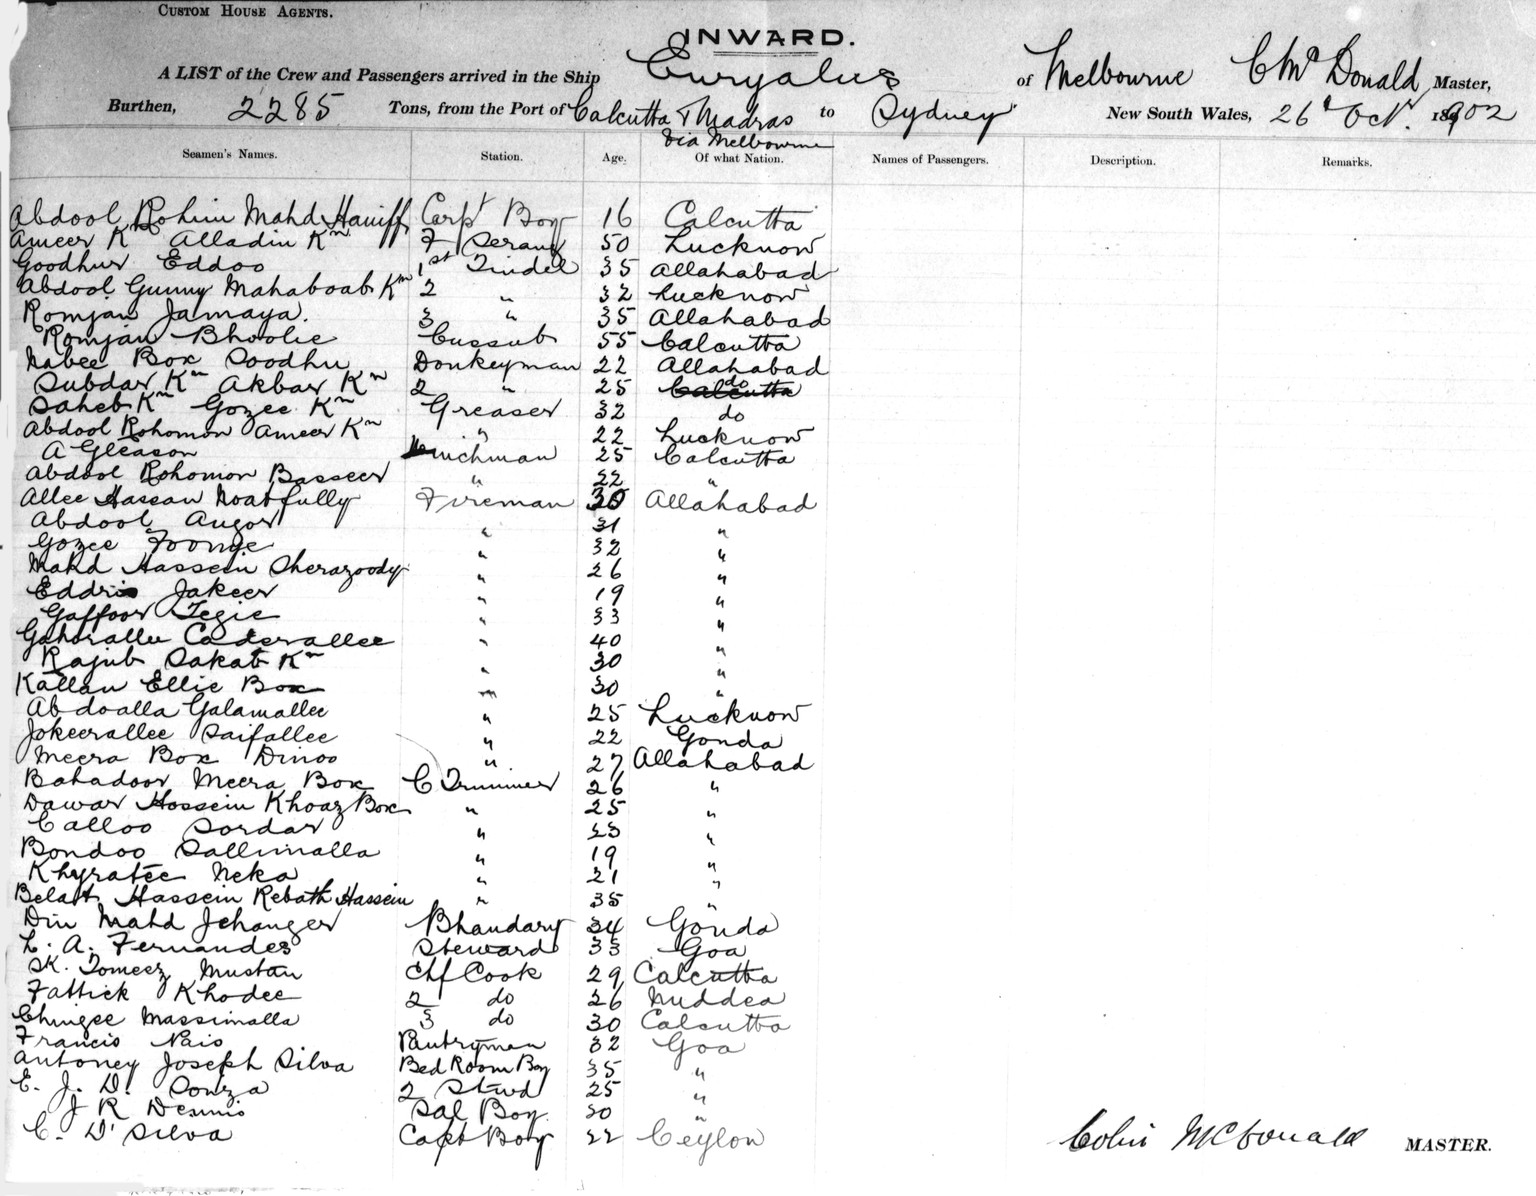 CUSTOM HOUSE AGENTS.
INWARD.
A LIST of the Crew and Passengers arrived in the Ship Euryalus of Melbourne C McDonald Master,
Burthen, 2285 Tons, from the Port of Calcutta & Madras to Sydney New South Wales, 26th Octr. 1902
via Melbourne
Seamen's Names. Station. Age. Of what Nation. Names of Passengers. Description. Remarks.
Abdool Rohim Mahd Haniff Carpt Boy 16 Calcutta
Ameer Kn Alladin Kn F Serang 50 Lucknow
Goodhur Eddoo 1st Tindel 35 Allahabad
Abdool Gunny Mahaboab Kn 2 " 32 Lucknow
Romjan Jamaya. 3 " 35 Allahabad
Romjan Bhoolie Cussub 55 Calcutta
Nabee Box Soodhu Donkeyman 22 Allahabad
Subdar Kn Akbar Kn 2 " 25 Calcutta do
Saheb Kn Gozee Kn Greaser 32 do
Abdool Rohomon Ameer Kn " 22 Lucknow
A Gleason Winchman 25 Calcutta
Abdool Rohomon Basseer " 22 "
Allee Hassan Noabfully Fireman 30 Allahabad
Abdool Augor " 31 "
Gozee Foonge " 32 "
Mahd Hassein Sherazoody " 26 "
Eddris Jakeer " 19 "
Gaffoor Tegie " 33 "
Gahorallee Caderallee " 40 "
Rajub Sakab Kn " 30 "
Kallan Ellie Box " 30 "
Abdoalla Galamallee " 25 Lucknow
Jokeerallee Saifallee " 22 Gonda
Meera Box Dinoo " 27 Allahabad
Bahadoor Meera Box C Trimmer 26 "
Dawar Hossein Khoaz Box " 25 "
Calloo Sordar " 23 "
Bondoo Sallimalla " 19 "
Khyratee Neka " 21 "
Belait Hassein Rebath Hassein " 35 "
Din Mahd Jehanger Bhandary 34 Gonda
L. A. Fernandes Steward 33 Goa
SK. Tomeez Mustan Chf Cook 29 Calcutta
Fattick Khodee 2 do 26 Nuddea
Chingee Massimalla 3 do 30 Calcutta
Francis Pais Pantryman 32 Goa
Antoney Joseph Silva Bed Room Boy 35 "
E. J. D. Souza 2 Stwd 25 "
J R Dennis Sal Boy. 20 "
C. D' Silva Capt Boy 22 Ceylon
Colin McDonald MASTER.